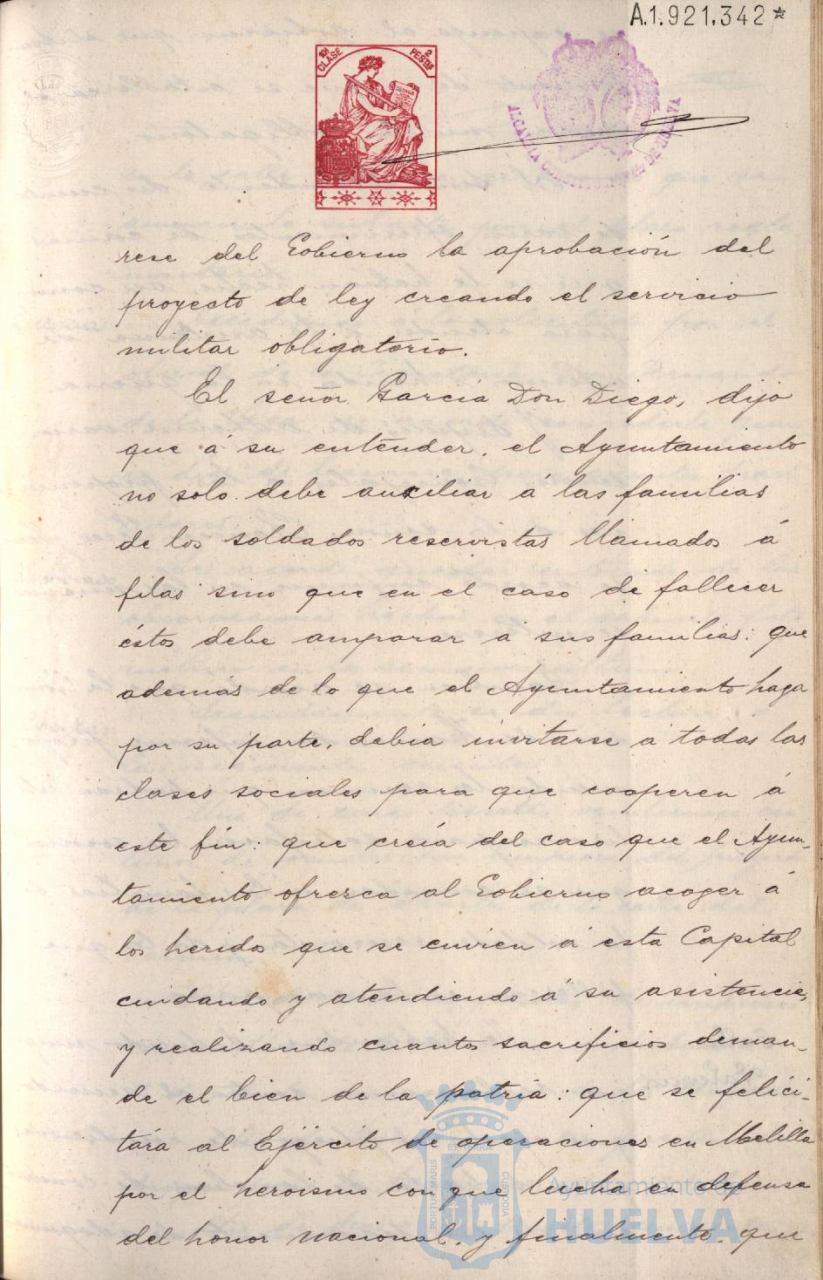 A.1.921.342*
10ª CLASE
2 PESTAS
ALCALDIA CONSTITUCIONAL DE HUELVA
rese del Gobierno la aprobación del
proyecto de ley creando el servicio
militar obligatorio.
El señor Garcia Don Diego, dijo
que á su entender, el Ayuntamiento
no solo debe auxiliar á las familias
de los soldados reservistas llamados á
filas sino que en el caso de fallecer
éstos debe amparar á sus familias: que
además de lo que el Ayuntamiento haga
por su parte, debia invitarse a todas las
clases sociales para que cooperen á
este fin: que creía del caso que el Ayun-
tamiento ofrezca al Gobierno acoger á
los herido que se envien á esta Capital
cuidando y atendiendo á su asistencia,
y realizando cuantos sacrificios deman-
de el bien de la patria: que se felici-
tára al Ejército de operaciones en Melilla
por el heroismo con que lucha en defensa
del honor nacional, y finalmente, que
Ayuntamiento de
HUELVA